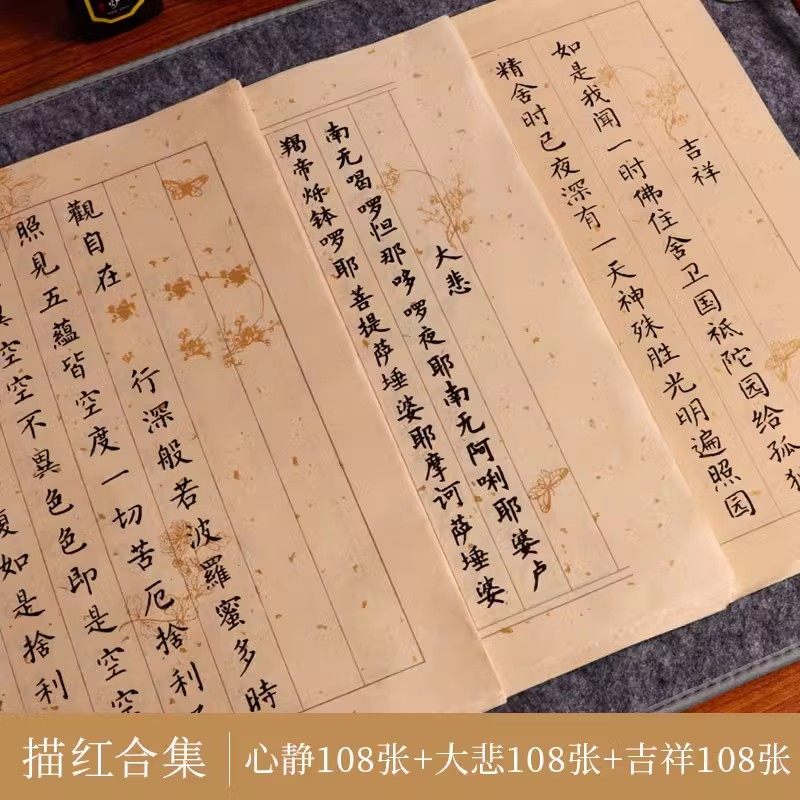 吉祥
如是我闻一时佛住舍卫国祗陀园给孤
精舍时已夜深有一天神殊胜光明遍照园
大悲
南无喝啰怛那哆啰夜耶南无阿唎耶婆卢
羯帝烁钵啰耶菩提萨埵婆耶摩诃萨埵婆
觀自在 行深般若波羅蜜多時
照見五蘊皆空度一切苦厄捨利
異空空不異色色即是空空
復如是捨利
描红合集 心静108张+大悲108张+吉祥108张